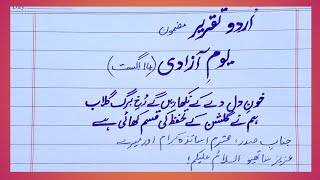 اُردو تقریر مضمون
یومِ آزادی (14 اگست)
خونِ دل دے کے نکھاریں گے رُخِ برگِ گلاب
ہم نے گلشن کے تحفظ کی قسم کھائی ہے
جنابِ صدر، محترم اساتذہ کرام اور میرے
عزیز ساتھیو السلام علیکم!